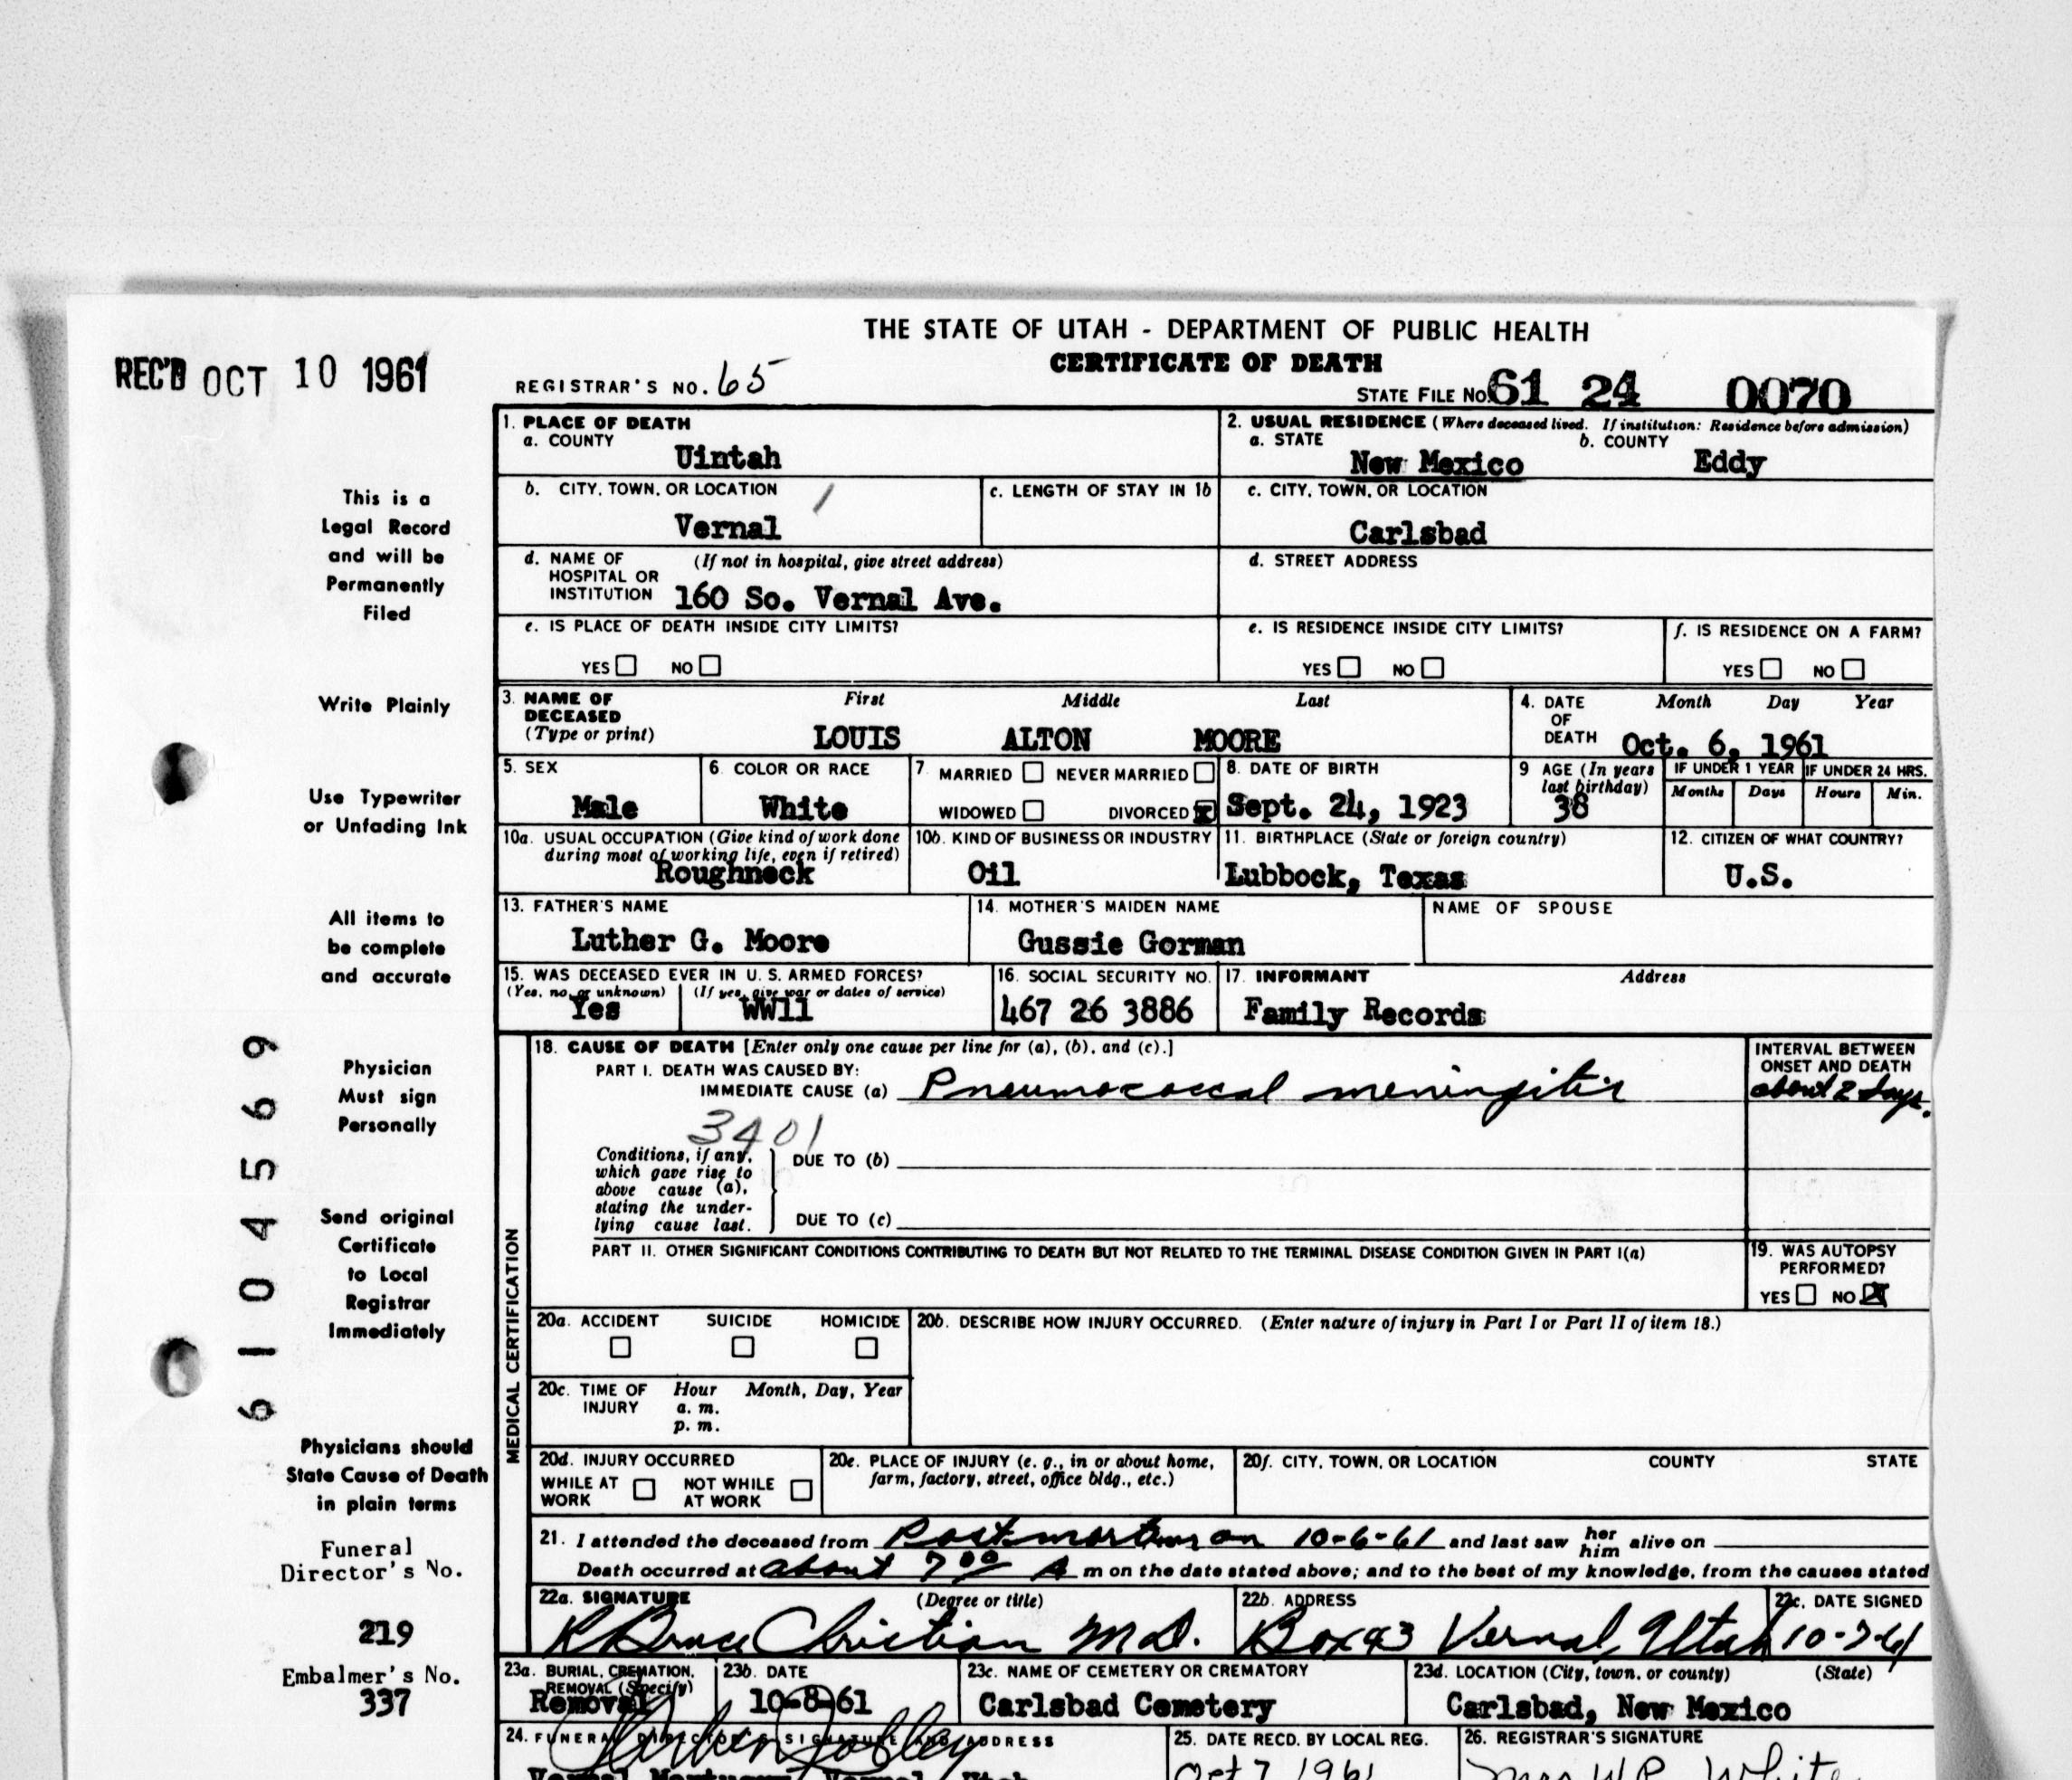 THE STATE OF UTAH - DEPARTMENT OF PUBLIC HEALTH
CERTIFICATE OF DEATH
REC'D OCT 10 1961
REGISTRAR'S NO. 65
STATE FILE NO. 61 24 0070
This is a
Legal Record
and will be
Permanently
Filed
Write Plainly
Use Typewriter
or Unfading Ink
All items to
be complete
and accurate
Physician
Must sign
Personally
Send original
Certificate
to Local
Registrar
Immediately
Physicians should
State Cause of Death
in plain terms
Funeral
Director's No.
219
Embalmer's No.
337
6104569
1. PLACE OF DEATH
a. COUNTY
Uintah
2. USUAL RESIDENCE (Where deceased lived. If institution: Residence before admission)
a. STATE b. COUNTY
New Mexico Eddy
b. CITY, TOWN, OR LOCATION
Vernal
c. LENGTH OF STAY IN 1b
c. CITY, TOWN, OR LOCATION
Carlsbad
d. NAME OF (If not in hospital, give street address)
HOSPITAL OR
INSTITUTION 160 So. Vernal Ave.
d. STREET ADDRESS
e. IS PLACE OF DEATH INSIDE CITY LIMITS?
YES NO
e. IS RESIDENCE INSIDE CITY LIMITS?
YES NO
f. IS RESIDENCE ON A FARM?
YES NO
3. NAME OF DECEASED (Type or print)
First Middle Last
LOUIS ALTON MOORE
4. DATE OF DEATH
Month Day Year
Oct. 6, 1961
5. SEX
Male
6. COLOR OR RACE
White
7 MARRIED NEVER MARRIED
WIDOWED DIVORCED X
8. DATE OF BIRTH
Sept. 24, 1923
9 AGE (In years last birthday)
38
IF UNDER 1 YEAR IF UNDER 24 HRS.
Months Days Hours Min.
10a. USUAL OCCUPATION (Give kind of work done
during most of working life, even if retired)
Roughneck
10b. KIND OF BUSINESS OR INDUSTRY
Oil
11. BIRTHPLACE (State or foreign country)
Lubbock, Texas
12. CITIZEN OF WHAT COUNTRY?
U.S.
13. FATHER'S NAME
Luther G. Moore
14. MOTHER'S MAIDEN NAME
Gussie Gorman
NAME OF SPOUSE
15. WAS DECEASED EVER IN U. S. ARMED FORCES?
(Yes, no, or unknown) (If yes, give war or dates of service)
Yes WW11
16. SOCIAL SECURITY NO.
467 26 3886
17. INFORMANT Address
Family Records
MEDICAL CERTIFICATION
18. CAUSE OF DEATH [Enter only one cause per line for (a), (b), and (c).]
PART I. DEATH WAS CAUSED BY:
IMMEDIATE CAUSE (a) Pneumococcal meningitis
INTERVAL BETWEEN
ONSET AND DEATH
about 2 days.
3401
Conditions, if any,
which gave rise to
above cause (a),
stating the under-
lying cause last.
DUE TO (b)
DUE TO (c)
PART II. OTHER SIGNIFICANT CONDITIONS CONTRIBUTING TO DEATH BUT NOT RELATED TO THE TERMINAL DISEASE CONDITION GIVEN IN PART I(a)
19. WAS AUTOPSY
PERFORMED?
YES NO X
20a. ACCIDENT SUICIDE HOMICIDE
20b. DESCRIBE HOW INJURY OCCURRED. (Enter nature of injury in Part I or Part II of item 18.)
20c. TIME OF INJURY Hour Month, Day, Year
a. m.
p. m.
20d. INJURY OCCURRED
WHILE AT WORK NOT WHILE AT WORK
20e. PLACE OF INJURY (e. g., in or about home,
farm, factory, street, office bldg., etc.)
20f. CITY, TOWN, OR LOCATION COUNTY STATE
21. I attended the deceased from Postmortem on 10-6-61 and last saw her him alive on
Death occurred at about 7 00 A m on the date stated above; and to the best of my knowledge, from the causes stated
22a. SIGNATURE (Degree or title)
R Bruce Christian M.D.
22b. ADDRESS
Box 93 Vernal, Utah
22c. DATE SIGNED
10-7-61
23a. BURIAL, CREMATION,
REMOVAL (Specify)
Removal
23b. DATE
10-8-61
23c. NAME OF CEMETERY OR CREMATORY
Carlsbad Cemetery
23d. LOCATION (City, town, or county) (State)
Carlsbad, New Mexico
24. FUNERAL DIRECTOR'S SIGNATURE AND ADDRESS
Vernal Mortuary Vernal, Utah
25. DATE RECD. BY LOCAL REG.
Oct 7 1961
26. REGISTRAR'S SIGNATURE
Mrs W R White